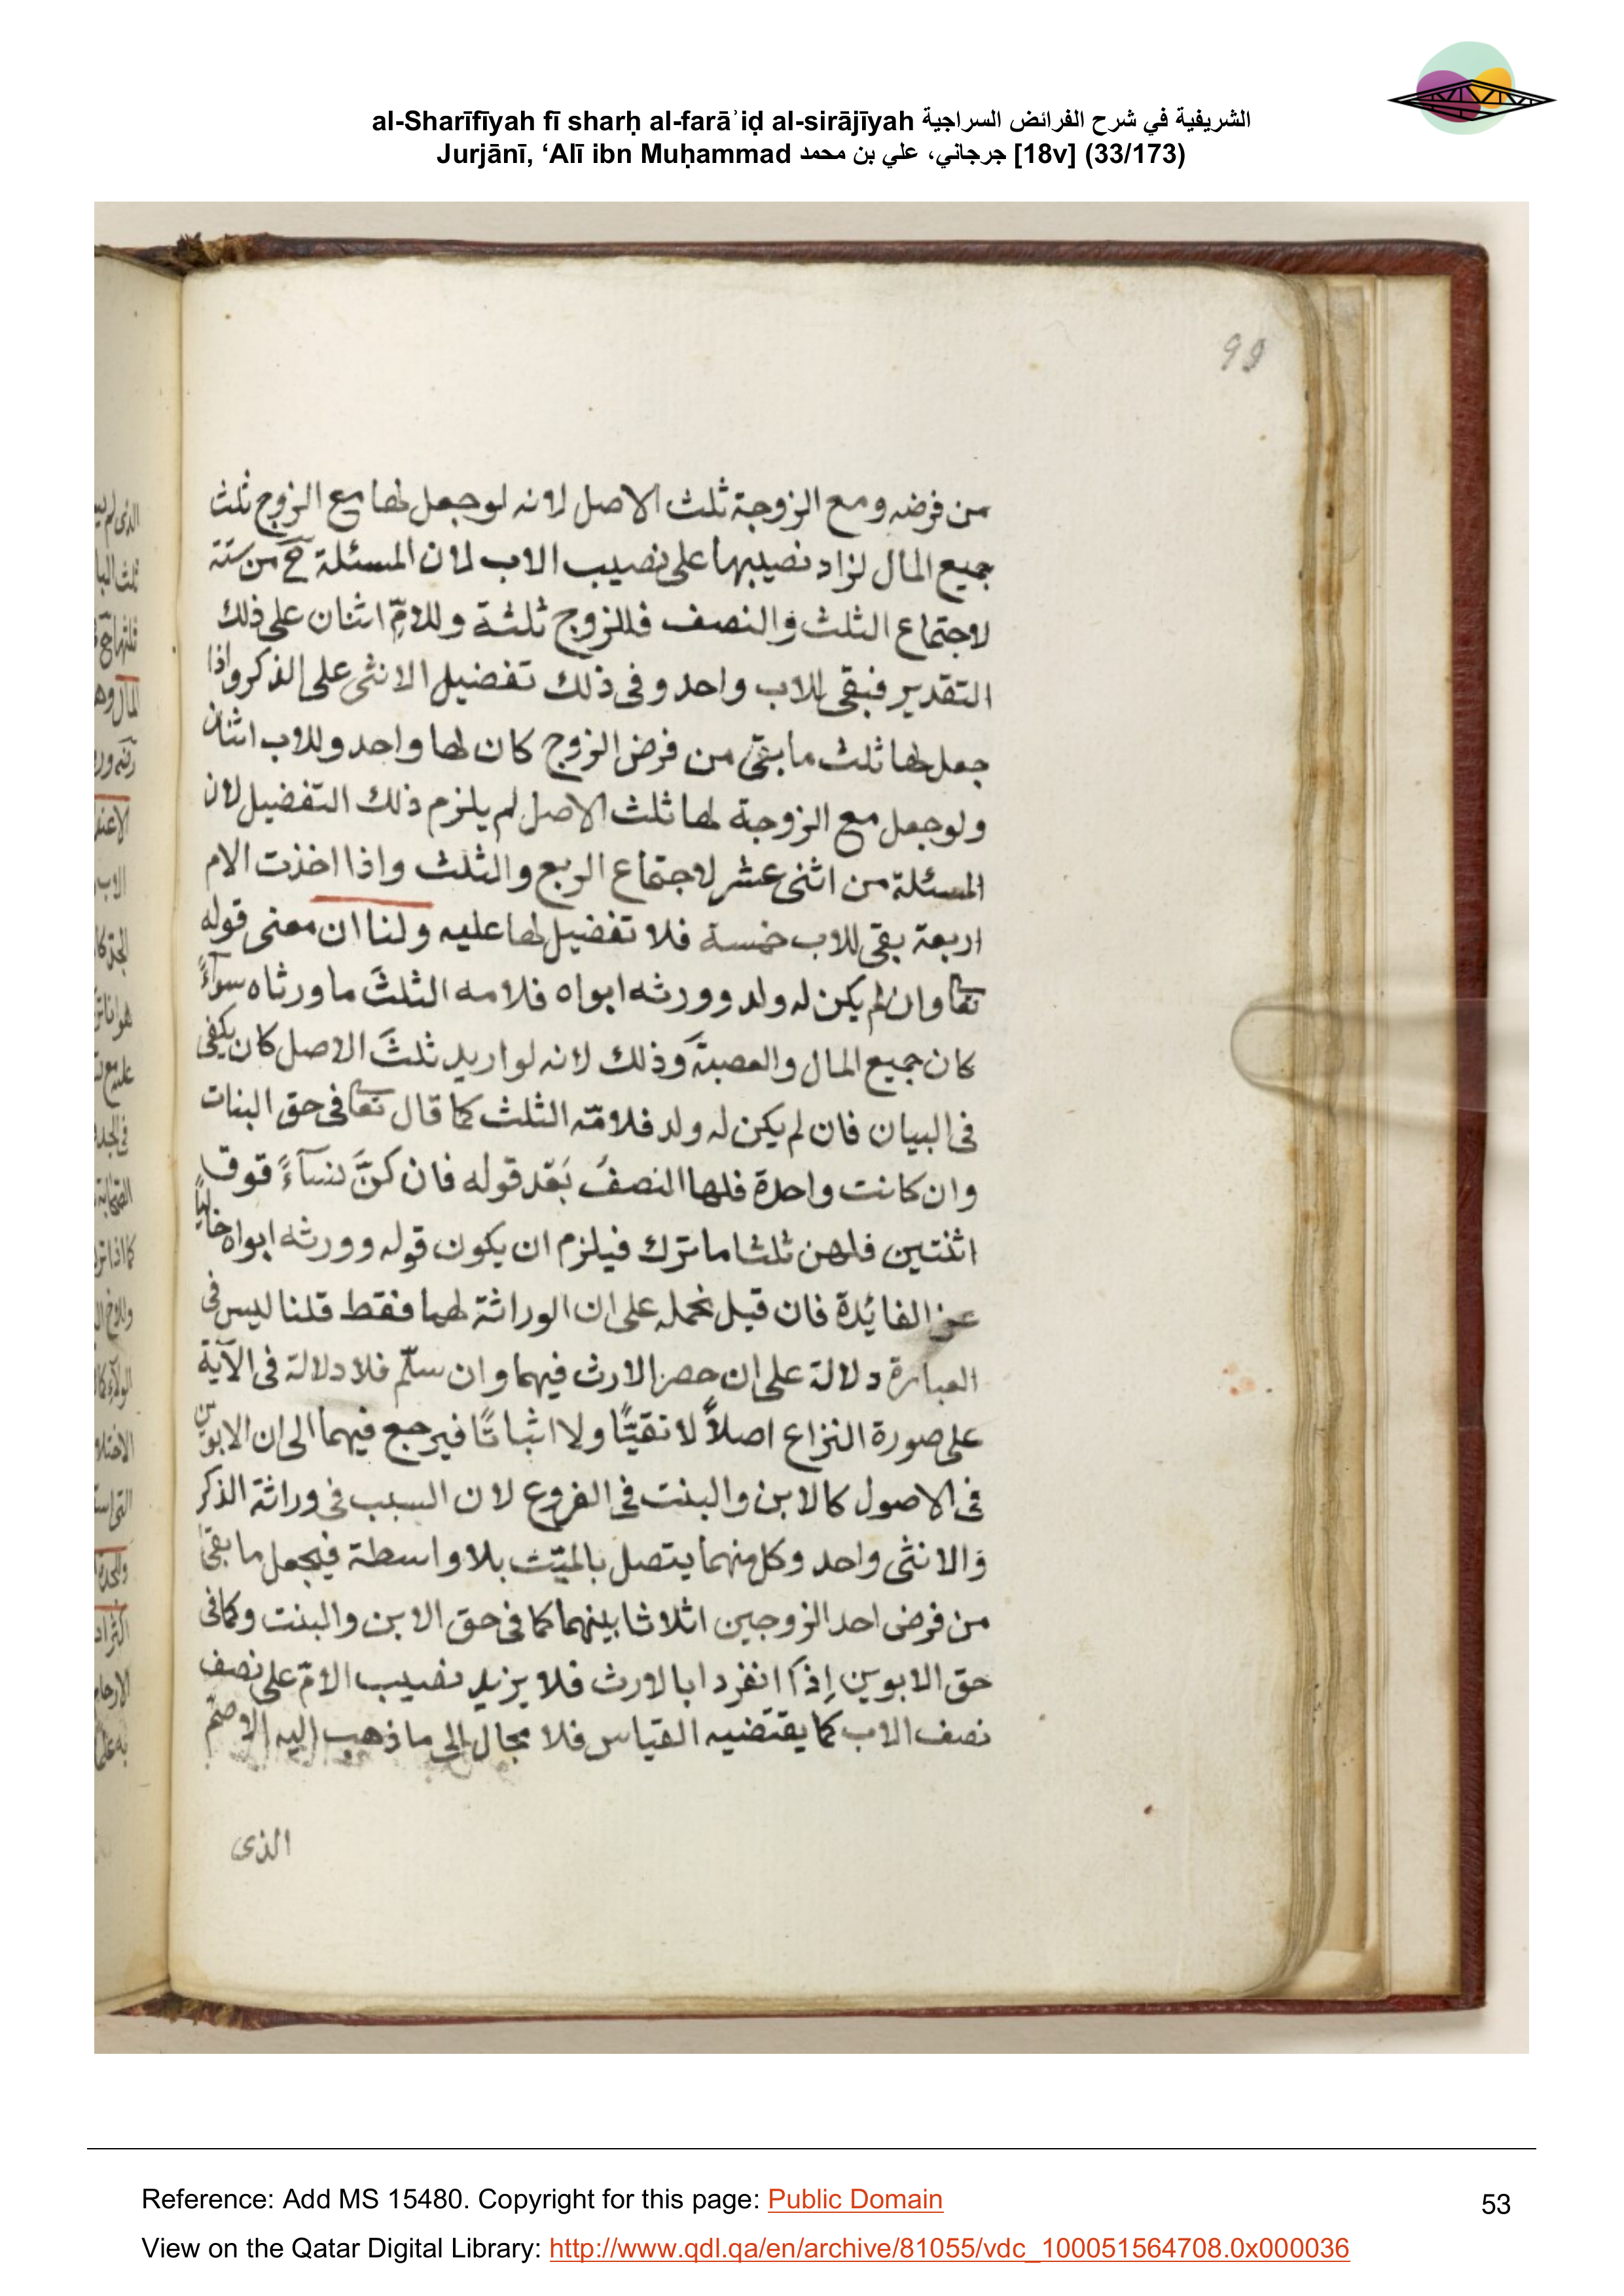 al-Sharīfīyah fī sharḥ al-farāʾiḍ al-sirājīyah الشريفية في شرح الفرائض السراجية
Jurjānī, ‘Alī ibn Muḥammad جرجاني، علي بن محمد [18v] (33/173)
99
من فرضه ومع الزوجة ثلث الاصل لانه لوجعل لها مع الزوج ثلث
جميع المال لزاد نصيبها على نصيب الاب لان المسئلة ح من ستة
لاجتماع الثلث والنصف فللزوج ثلثة وللامّ اثنان على ذلك
التقدير فبقى للاب واحد وفى ذلك تفضيل الانثى على الذكر واذا
جعل لها ثلث ما بقى من فرض الزوج كان لها واحد وللاب اثنان
ولوجعل مع الزوجة لها ثلث الاصل لم يلزم ذلك التفضيل لان
المسئلة من اثنى عشر لاجتماع الربع والثلث واذا اخذت الام
اربعة بقى للاب خمسة فلا تفضيل لها عليه ولنا ان معنى قوله
تعا وان لم يكن له ولد وورثه ابواه فلامه الثلثَ ما ورثاه سوآءً
كان جميع المال والعصبةَ وذلك لانه لو اريد ثلثَ الاصل كان يكفى
فى البيان فان لم يكن له ولد فلامّه الثلث كما قال تعا فى حق البنات
وان كانت واحدة فلها النصفُ بَعْد قوله فان كنَّ نسآءً فوق
اثنتين فلهن ثلثا ما ترك فيلزم ان يكون قوله وورثه ابواه خالياً
عن الفائدة فان قيل نحمله على ان الوراثة لهما فقط قلنا ليس فى
العبارة دلالة على ان حصر الارث فيهما وان سلّم فلا دلالة فى الآية
على صورة النزاع اصلاً لا نفيًا ولا اثباتًا فيرجع فيهما الى ان الابوين
فى الاصول كالابن والبنت فى الفروع لان السبب فى وراثة الذكر
والانثى واحد وكل منهما يتصل بالميّت بلا واسطة فيجعل ما بقى
من فرض احد الزوجين اثلاثا بينهما كما فى حق الابن والبنت وكما فى
حق الابوين إذا انفردا بالارث فلا يزيد نصيب الامّ على نصف
نصف الاب كما يقتضيه القياس فلا مجال الى ما ذهب اليه الاصمّ
الذى
Reference: Add MS 15480. Copyright for this page: Public Domain
53
View on the Qatar Digital Library: http://www.qdl.qa/en/archive/81055/vdc_100051564708.0x000036